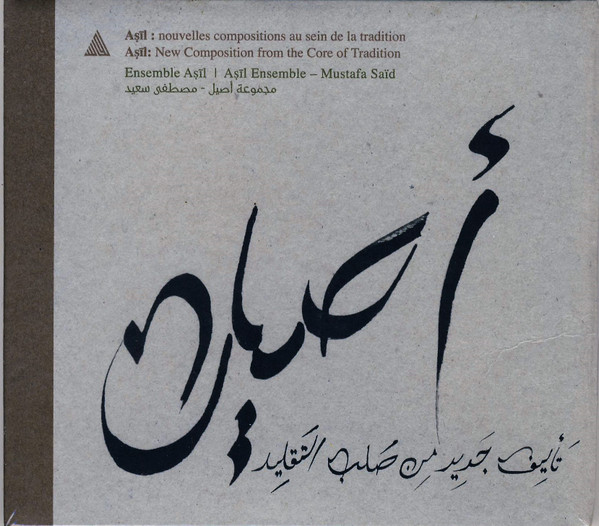 Aṣīl : nouvelles compositions au sein de la tradition
Aṣīl: New Composition from the Core of Tradition
Ensemble Aṣīl | Aṣīl Ensemble – Mustafa Saïd
مجموعة أصيل - مصطفى سعيد
أصيل
تأليف جَديد مِن صُلب التَقليد